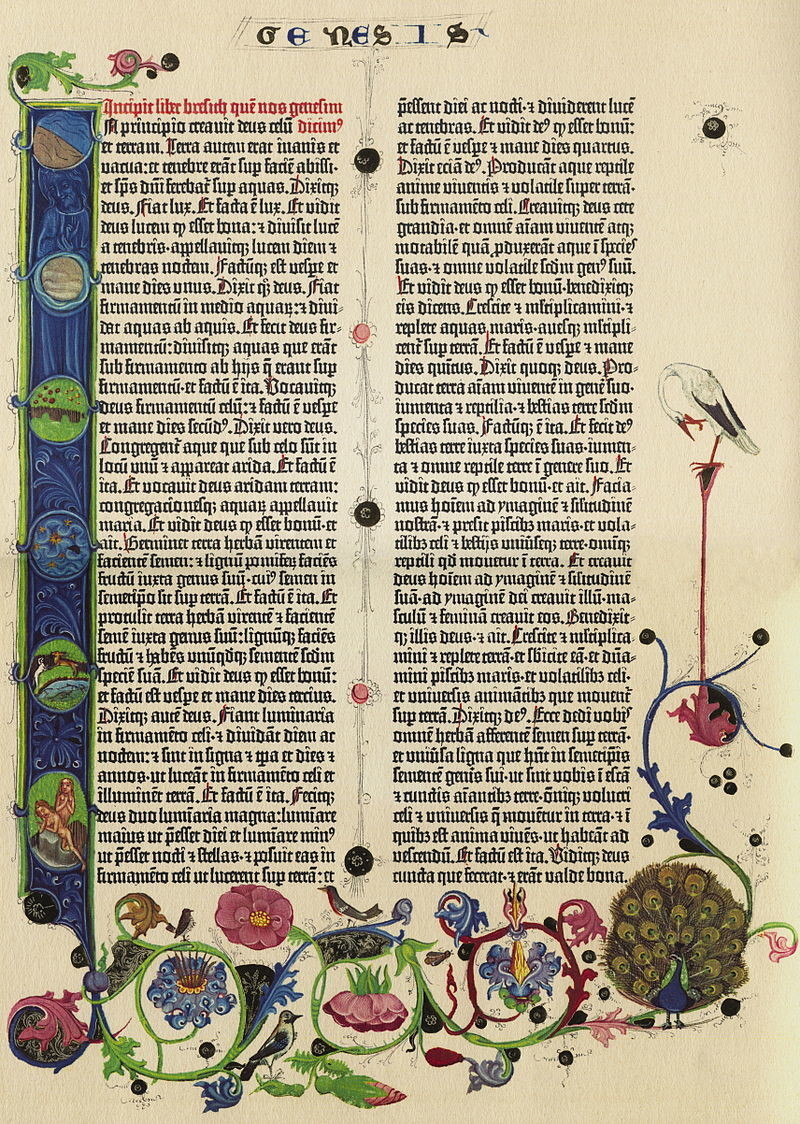 GENESIS
Incipit liber bresith quē nos genesim
IN principio creavit deus celū dicimꝰ
et terram. Terra autem erat inanis et
vacua: et tenebre erāt sup faciē abissi·
et sp̄s dn̄i ferebat̄ sup aquas. Dixitq̨
deus. Fiat lux. Et facta ē lux. Et vidit
deus lucem ꝙ esset bona: ⁊ divisit lucē
a tenebris· appellavitq̨ lucem diem ⁊
tenebras noctem. Factūq̨ est vespe et
mane dies unus. Dixit qꝫ deus. Fiat
firmamentū in medio aquaꝝ: ⁊ divi-
dat aquas ab aquis. Et fecit deus fir-
mamentū: divisitq̨ aquas que erāt
sub firmamento ab hijs q̄ erant sup
firmamentū· et factū ē ita. Vocavitq̨
deus firmamentū celū: ⁊ factū ē vespe
et mane dies secūdꝰ. Dixit vero deus.
Congregent̄ aque que sub celo sūt in
locū unū ⁊ appareat arida. Et factū ē
ita. Et vocavit deus aridam terram:
congregacionesq̨ aquaꝝ appellavit
maria. Et vidit deus ꝙ esset bonū· et
ait. Germinet terra herbā virentem et
facientē semen: ⁊ lignū pomifeꝝ faciēs
fructū iuxta genus suū· cuiꝰ semen in
semetipo sit sup terrā. Et factū ē ita. Et
protulit terra herbā virentē ⁊ facientē
semē iuxta genus suū: lignūq̨ faciēs
fructū ⁊ habēs unūqdq̨ sementē scdm
speciē suā. Et vidit deus ꝙ esset bonū:
et factū est vespe et mane dies tercius.
Dixitq̨ autē deus. Fiant luminaria
in firmamēto celi· ⁊ dividāt diem ac
noctem: ⁊ sint in signa ⁊ tp̄a et dies ⁊
annos· ut luceāt in firmamēto celi et
illuminēt terrā. Et factū ē ita. Fecitq̨
deus duo luminaria magna: luminare
maius ut p̄esset diei et lumiare minꝰ
ut p̄esset nocti ⁊ stellas· ⁊ posuit eas in
firmamēto celi ut lucerent sup terrā: et
p̄essent diei ac nocti· ⁊ dividerent lucē
ac tenebras. Et vidit deꝰ ꝙ esset bonū:
et factū ē vespe ⁊ mane dies quartus.
Dixit eciam deꝰ. Producāt aque reptile
anime viventis ⁊ volatile super terrā·
sub firmamēto celi. Creavitq̨ deus cete
grandia· et omnē aīam viventē atq̨
motabilē quā ꝓduxerāt aque ī species
suas· ⁊ omne volatile scdm genꝰ suū.
Et vidit deus ꝙ esset bonū· benedixitq̨
eis dicens. Crescite ⁊ mltiplicamini· ⁊
replete aquas maris· avesq̨ mltipli-
cent̄ sup terrā. Et factū ē vespe ⁊ mane
dies quitus. Dixit quoq̨ deus. Pro-
ducat terra aīam viventē in genē suo·
iumenta ⁊ reptilia· ⁊ bestias terre scdm
species suas. Factūq̨ ē ita. Et fecit deꝰ
bestias terre iuxta species suas· iumen-
ta ⁊ omne reptile terre ī genere suo. Et
vidit deus ꝙ esset bonū· et ait. Facia-
mus hoīem ad ymaginē ⁊ silitudinē
nostrā· ⁊ presit piscibꝫ maris· et vola-
tilibꝫ celi ⁊ bestijs universeq̨ terre· omīq̨
reptili qd movetur ī terra. Et creavit
deus hoīem ad ymaginē ⁊ silitudinē
suā· ad ymaginē dei creavit illū· ma-
sculū ⁊ feminā creavit eos. Benedixit-
q̨ illis deus· ⁊ ait. Crescite ⁊ mltiplica-
mini ⁊ replete terrā· et sbicite eā· et dn̄a-
mini piscibꝫ maris· et volatilibꝫ celi·
et universis animātibꝫ que movent̄
sup terrā. Dixitq̨ deꝰ. Ecce dedi vobis
omnē herbā afferentē semen sup terrā·
et univsa ligna que hn̄t in semetip̄is
sementē genis sui· ut sint vobis ī escā
⁊ cunctis aīantibꝫ terre· oīniq̨ volucri
celi ⁊ universis q̄ moventur in terra· ⁊ ī
quibꝫ est anima vivēs· ut habeāt ad
vescendū. Et factū est ita. Viditq̨ deus
cuncta que fecerat· ⁊ erāt valde bona.